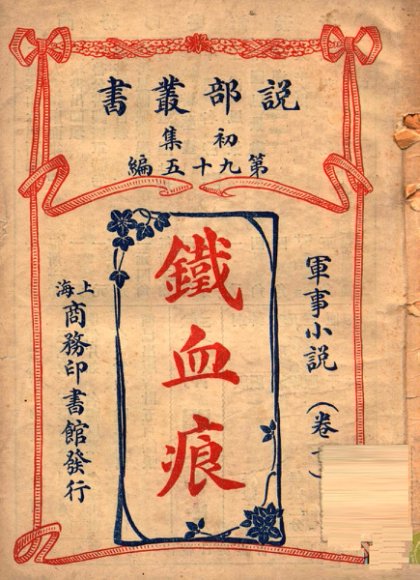 説部叢書
初集
第九十五編
軍事小説（卷
鐵血痕
上海商務印書館發行